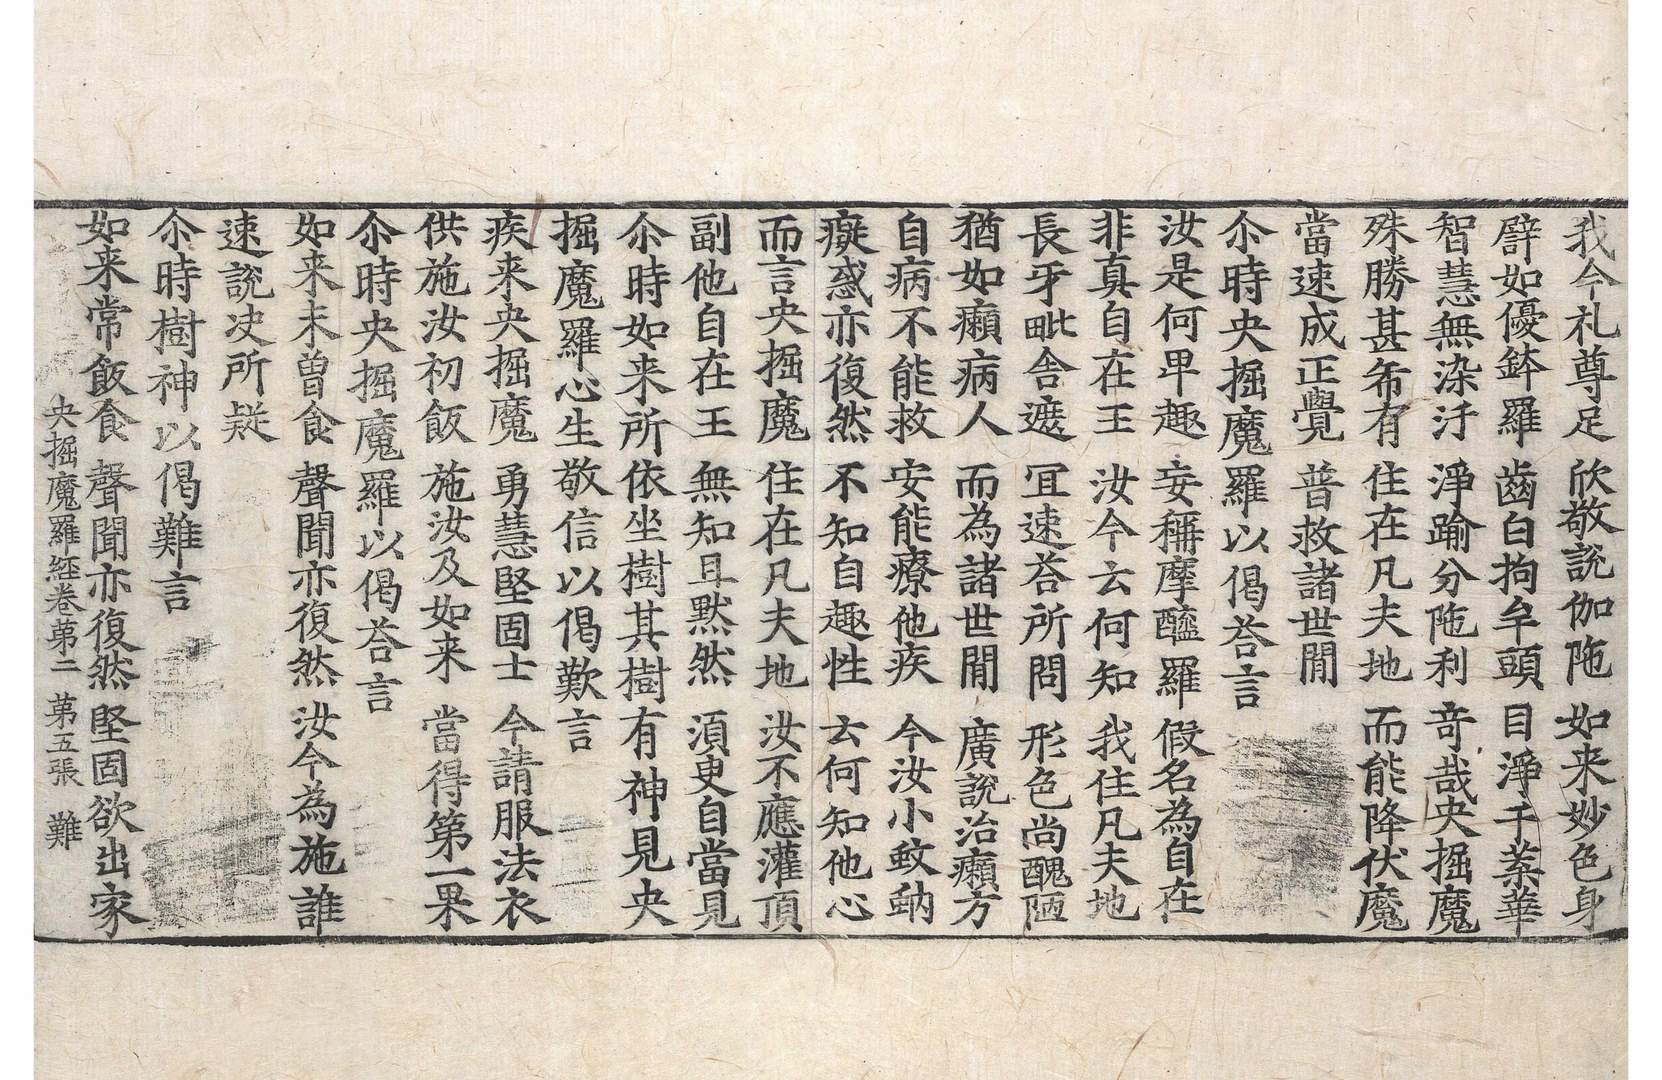 我今礼尊足 欣敬說伽陁 如来妙色身
譬如優鉢羅 齒白拘牟頭 目淨千葉華
智慧無染汙 淨踰分陁利 竒哉央掘魔
殊勝甚希有 住在凡夫地 而能降伏魔
當速成正覺 普救諸世閒
尒時央掘魔羅以偈荅言
汝是何卑趣 妄稱摩醯羅 假名為自在
非真自在王 汝今云何知 我住凡夫地
長牙毗舍遮 冝速荅所問 形色尚醜陋
猶如癩病人 而為諸世閒 廣說治癩方
自病不能救 安能療他疾 今汝小蚊蚋
癡惑亦復然 不知自趣性 云何知他心
而言央掘魔 住在凡夫地 汝不應灌頂
副他自在王 無知且默然 湏臾自當見
尒時如来所依坐樹其樹有神見央
掘魔羅心生敬信以偈歎言
疾来央掘魔 勇慧堅固士 今請服法衣
供施汝初飯 施汝及如来 當得第一果
尒時央掘魔羅以偈荅言
如来未曾食 聲聞亦復然 汝今為施誰
速說决所疑
尒時樹神以偈難言
如来常飯食 聲聞亦復然 堅固欲出家
央掘魔羅経卷苐二 第五張 難